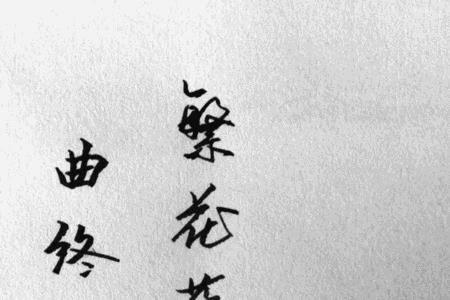 繁花
曲终